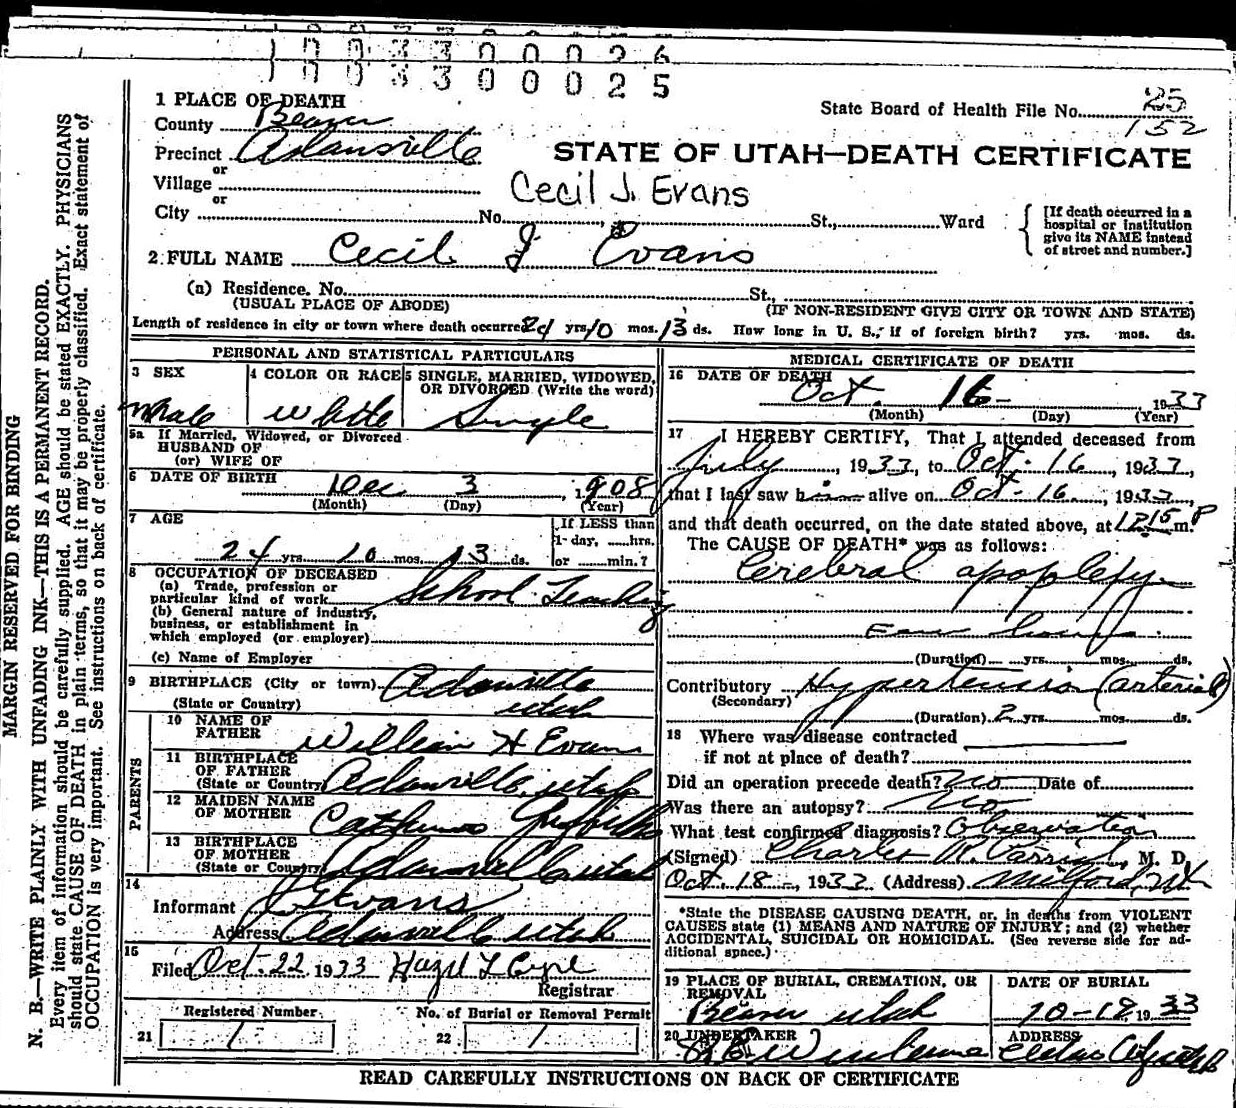 1 0 0 3 3 0 0 0 2 6
1 0 0 3 3 0 0 0 2 5
1 PLACE OF DEATH
State Board of Health File No. 25
152
County Beaver
Precinct Adamsville
STATE OF UTAH—DEATH CERTIFICATE
or
Village
Cecil J. Evans
or
City No. , St., Ward
[If death occurred in a hospital or institution give its NAME instead of street and number.]
2 FULL NAME Cecil J Evans
(a) Residence. No. St.,
(USUAL PLACE OF ABODE) (IF NON-RESIDENT GIVE CITY OR TOWN AND STATE)
Length of residence in city or town where death occurred 24 yrs 10 mos. 13 ds. How long in U. S., if of foreign birth? yrs. mos. ds.
PERSONAL AND STATISTICAL PARTICULARS
3 SEX
Male
4 COLOR OR RACE
White
5 SINGLE, MARRIED, WIDOWED, OR DIVORCED (Write the word)
Single
5a If Married, Widowed, or Divorced
HUSBAND OF
(or) WIFE OF
6 DATE OF BIRTH
Dec 3, 1908
(Month) (Day) (Year)
7 AGE
24 yrs 10 mos. 13 ds.
If LESS than
1 day, hrs.
or min.?
8 OCCUPATION OF DECEASED
(a) Trade, profession or
particular kind of work School Teaching
(b) General nature of industry,
business, or establishment in
which employed (or employer)
(c) Name of Employer
9 BIRTHPLACE (City or town) Adamsville
(State or Country) Utah
PARENTS
10 NAME OF
FATHER William H Evans
11 BIRTHPLACE
OF FATHER
(State or Country) Adamsville, Utah
12 MAIDEN NAME
OF MOTHER Catherine Griffiths
13 BIRTHPLACE
OF MOTHER
(State or Country) Adamsville Utah
14
Informant Evans
Address Adamsville Utah
15
Filed Oct. 22 1933 Hazel
Registrar
Registered Number
21 1
No. of Burial or Removal Permit
22 1
MEDICAL CERTIFICATE OF DEATH
16 DATE OF DEATH
Oct. 16- 1933
(Month) (Day) (Year)
17 I HEREBY CERTIFY, That I attended deceased from
July , 1933, to Oct. 16 , 1933,
that I last saw him alive on Oct-16 , 1933,
and that death occurred, on the date stated above, at 1215 m. P
The CAUSE OF DEATH* was as follows:
Cerebral apoplexy
hours
(Duration) yrs. mos. ds.
Contributory Hypertension (arterial)
(Secondary)
(Duration) 2 yrs. mos. ds.
18 Where was disease contracted
if not at place of death?
Did an operation precede death? No Date of
Was there an autopsy? No
What test confirmed diagnosis? Observation
(Signed) Charles R. Parrish, M. D.
Oct. 18-, 1933 (Address) Milford, Ut
*State the DISEASE CAUSING DEATH, or, in deaths from VIOLENT
CAUSES state (1) MEANS AND NATURE OF INJURY; and (2) whether
ACCIDENTAL, SUICIDAL OR HOMICIDAL. (See reverse side for ad-
ditional space.)
19 PLACE OF BURIAL, CREMATION, OR
REMOVAL
Beaver Utah
DATE OF BURIAL
10-18, 1933
20 UNDERTAKER
ADDRESS
Cedar City Utah
READ CAREFULLY INSTRUCTIONS ON BACK OF CERTIFICATE
MARGIN RESERVED FOR BINDING
N. B.—WRITE PLAINLY WITH UNFADING INK—THIS IS A PERMANENT RECORD.
Every item of information should be carefully supplied. AGE should be stated EXACTLY. PHYSICIANS
should state CAUSE OF DEATH in plain terms, so that it may be properly classified. Exact statement of
OCCUPATION is very important. See instructions on back of certificate.